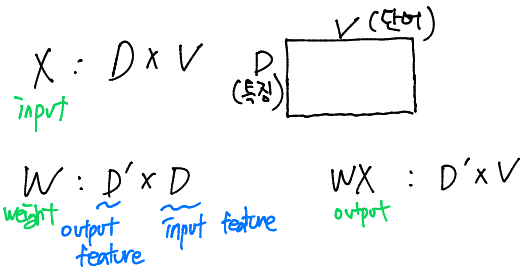 X : D x V
input
V (단어)
D
(특징)
W : D' x D
weight
output
feature
input feature
WX : D' x V
output